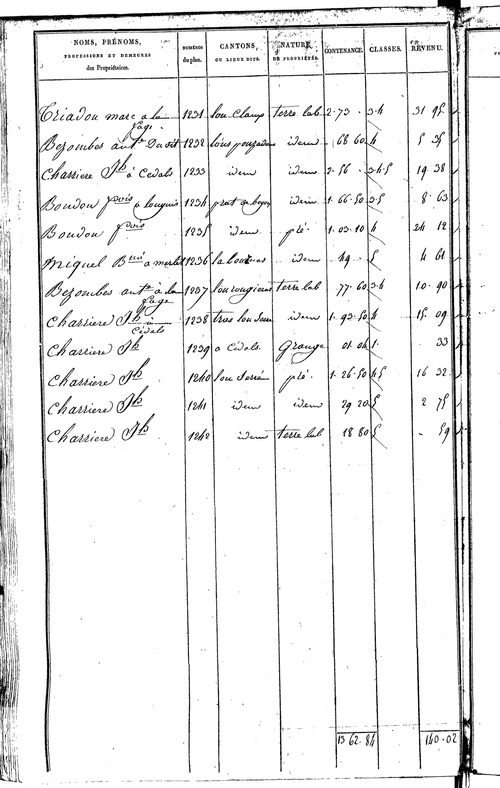 NOMS, PRÉNOMS, PROFESSIONS ET DEMEURES des Propriétaires. NUMÉROS du plan. CANTONS, OU LIEUX DITS. NATURE DE PROPRIÉTÉS. CONTENANCE. CLASSES. REVENU.
Triadou marc a la fage 1231 lou Clamp terre lab 2.73 . 3.4 31 95
Bezombes ant.e Dusit 1232 idem 68 60 4 5 35
Charriere Jh a Cedals 1233 idem idem 2.56 . 3.4.5 19 38
Boudou fcois 1234 prat idem 1.66.50 3.5 8 63
Boudou fcois 1235 idem pré. 1.03.10 4 24 12
Miquel Bmé a merlet 1236 idem 49 . 5 4 61
Bezombes ant.e a la fage 1237 lou rougieiras terre lab 77.60 3.4 10.90
Charriere Jh a Cedals 1238 tras lou idem 1.93.50 4 15.09
Charriere Jh 1239 a Cedals. Grange 01.04 1. 33
Charriere Jh 1240 lou pré. 1.26.50 4.5 16 32
Charriere Jh 1241 idem idem 29 20 5 2 75
Charriere Jh 1242 idem terre lab 18 80 5 . 59
13 62.84 140.02